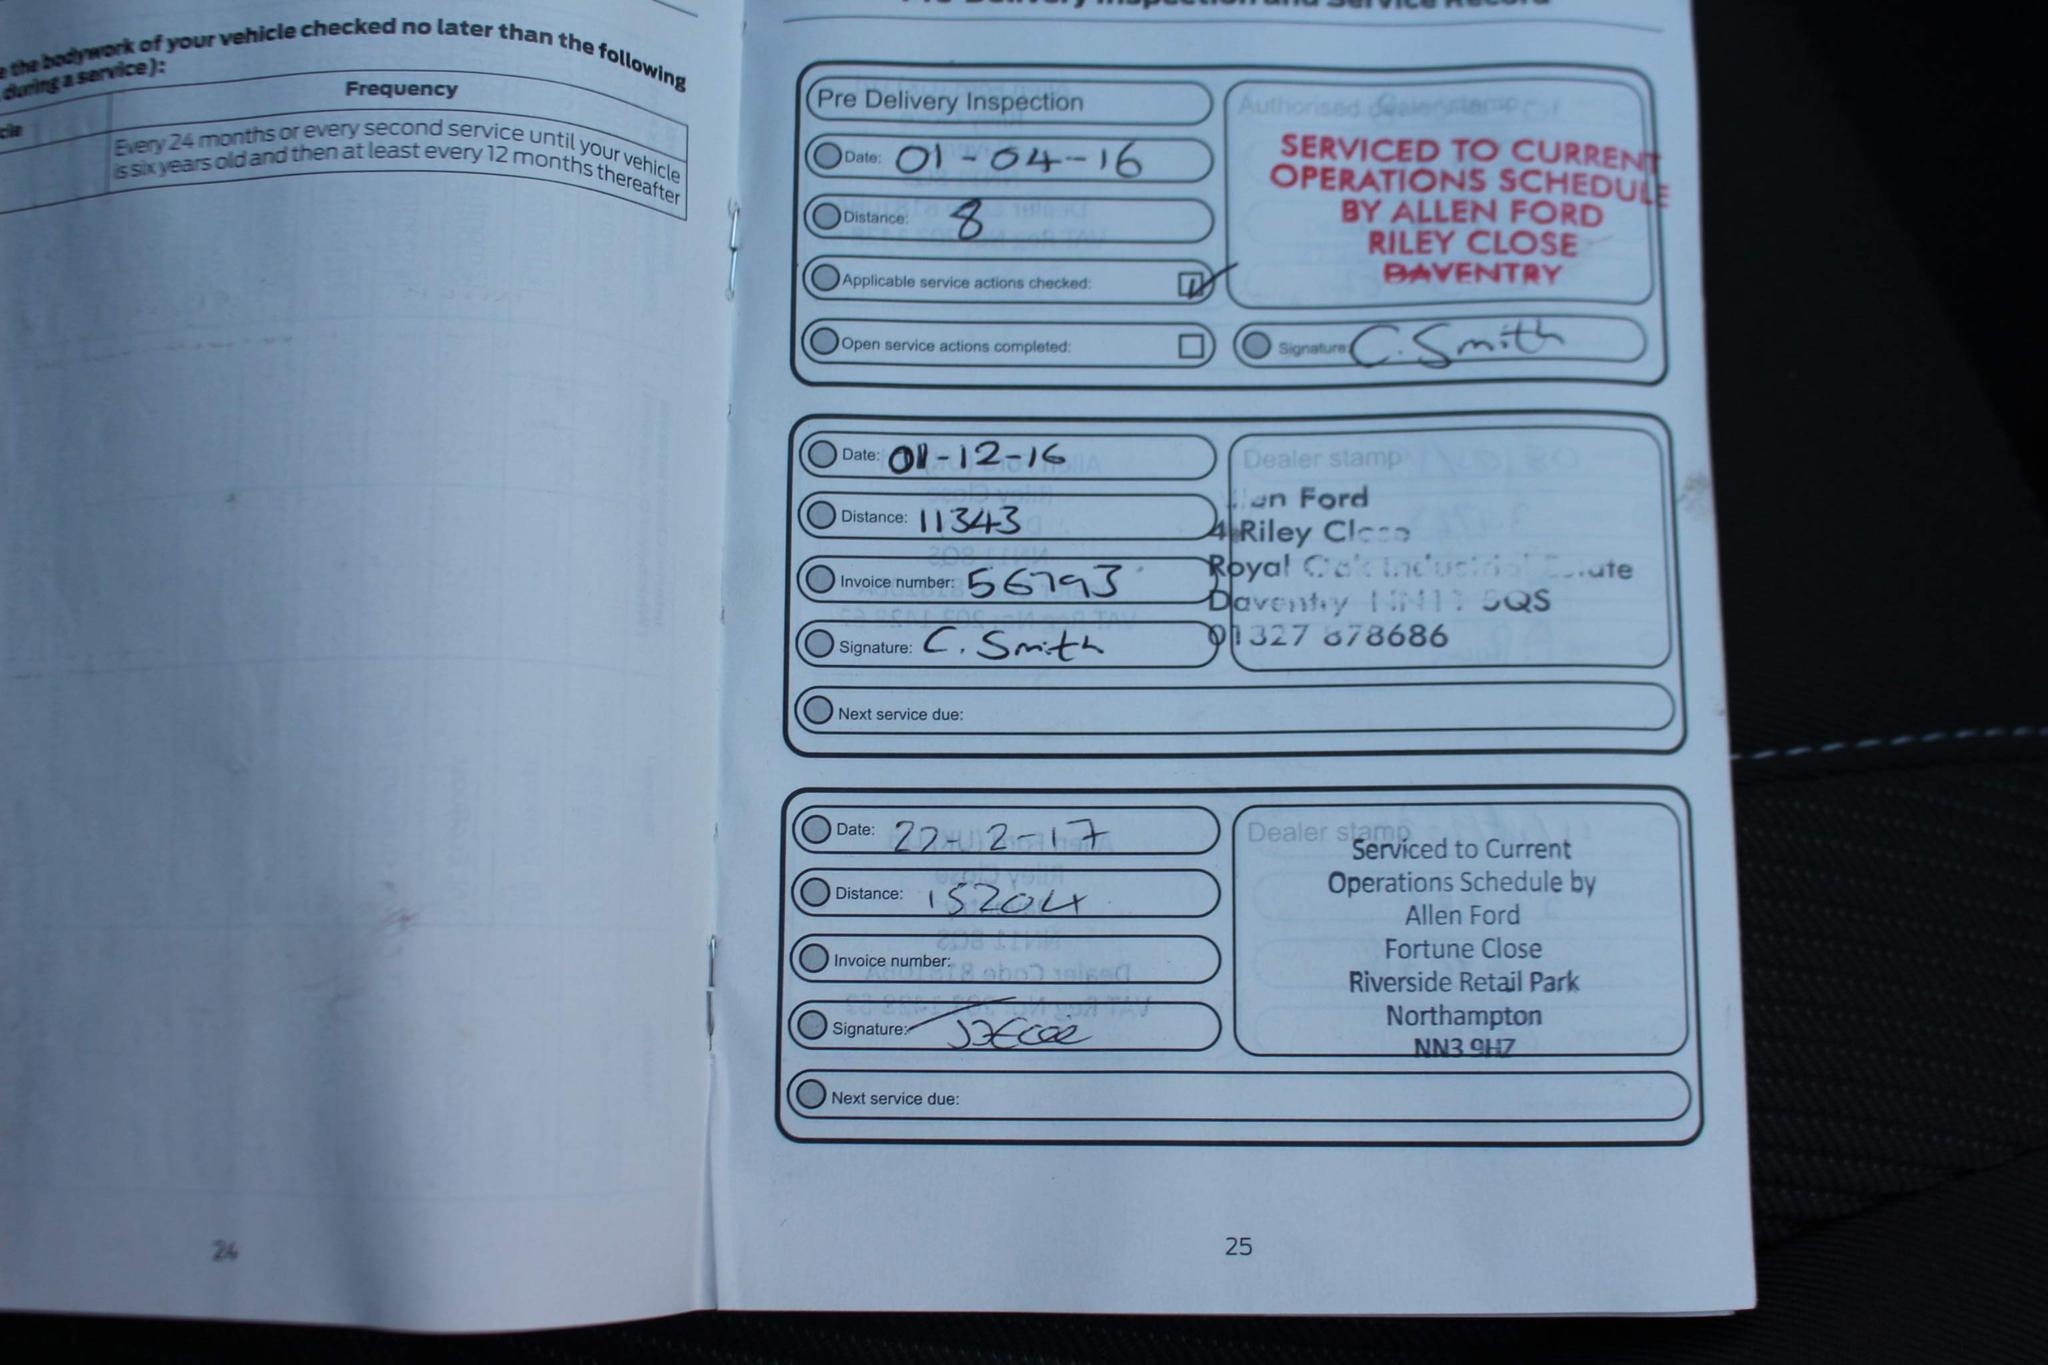 the bodywork of your vehicle checked no later than the following
during a service):
Frequency
Every 24 months or every second service until your vehicle
is six years old and then at least every 12 months thereafter
24
Pre Delivery Inspection and Service Record
Pre Delivery Inspection
Date: 01-04-16
Distance: 8
Applicable service actions checked:
Open service actions completed:
Authorised dealer stamp
SERVICED TO CURRENT
OPERATIONS SCHEDULE
BY ALLEN FORD
RILEY CLOSE
DAVENTRY
Signature: C. Smith
Date: 01-12-16
Distance: 11343
Invoice number: 56793
Signature: C. Smith
Next service due:
Dealer stamp
Allen Ford
4 Riley Close
Royal Oak Industrial Estate
Daventry NN11 8QS
01327 878686
Date: 22-2-17
Distance: 15204
Invoice number:
Signature:
Next service due:
Dealer stamp
Serviced to Current
Operations Schedule by
Allen Ford
Fortune Close
Riverside Retail Park
Northampton
NN3 9HZ
25